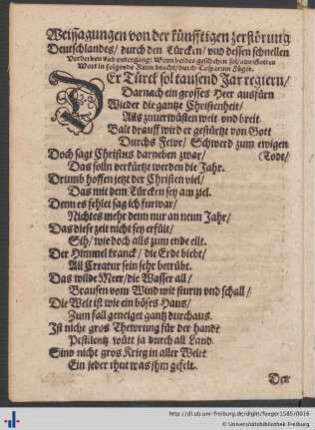 Weissagungen von der künfftigen zerstörung
Deutschlandes/ durch den Türcken/ vnd dessen schnellen
Verderben vnd vntergang: Wenn beides geschehen sol/ aus Gottes
Wort in folgende Reim bracht/ durch
DEr Türck sol tausend Jar regiern/
Darnach ein grosses Heer ausfürn
Wieder die gantze Christenheit/
Alls zuuerwüsten weit vnd breit
Balt drauff wird er gestürtzt von Gott
Durchs Fewr/ Schwerd zum ewigen
(Todt/
Doch sagt Christus darneben zwar/
Das solln verkürtzt werden die Jahr.
Drumb hoffen jetzt der Christen viel/
Das mit dem Türcken sey am ziel.
Denn es fehlet sag ich furwar/
Nichtes mehr denn nur an neun Jahr/
Das diese zeit nicht sey erfült/
Sih/ wie doch alls zum ende eilt.
Der Himmel kranck/ die Erde biebt/
All Creatur sein sehr betrübt.
Das wilde Meer/ die Wasser all/
Brausen vom Wind mit sturm vnd schall/
Die Welt ist wie ein böses Haus/
Zum fall geneiget gantz durchaus.
Ist nicht gros Thewrung für der handt
Pestilentz wütt ja durch all Land.
Sind nicht gros Krieg in aller Welt
Ein jeder thut was jhm gefelt.
Der
http://dl.ub.uni-freiburg.de/diglit/faeger1585/0016
© Universitätsbibliothek Freiburg